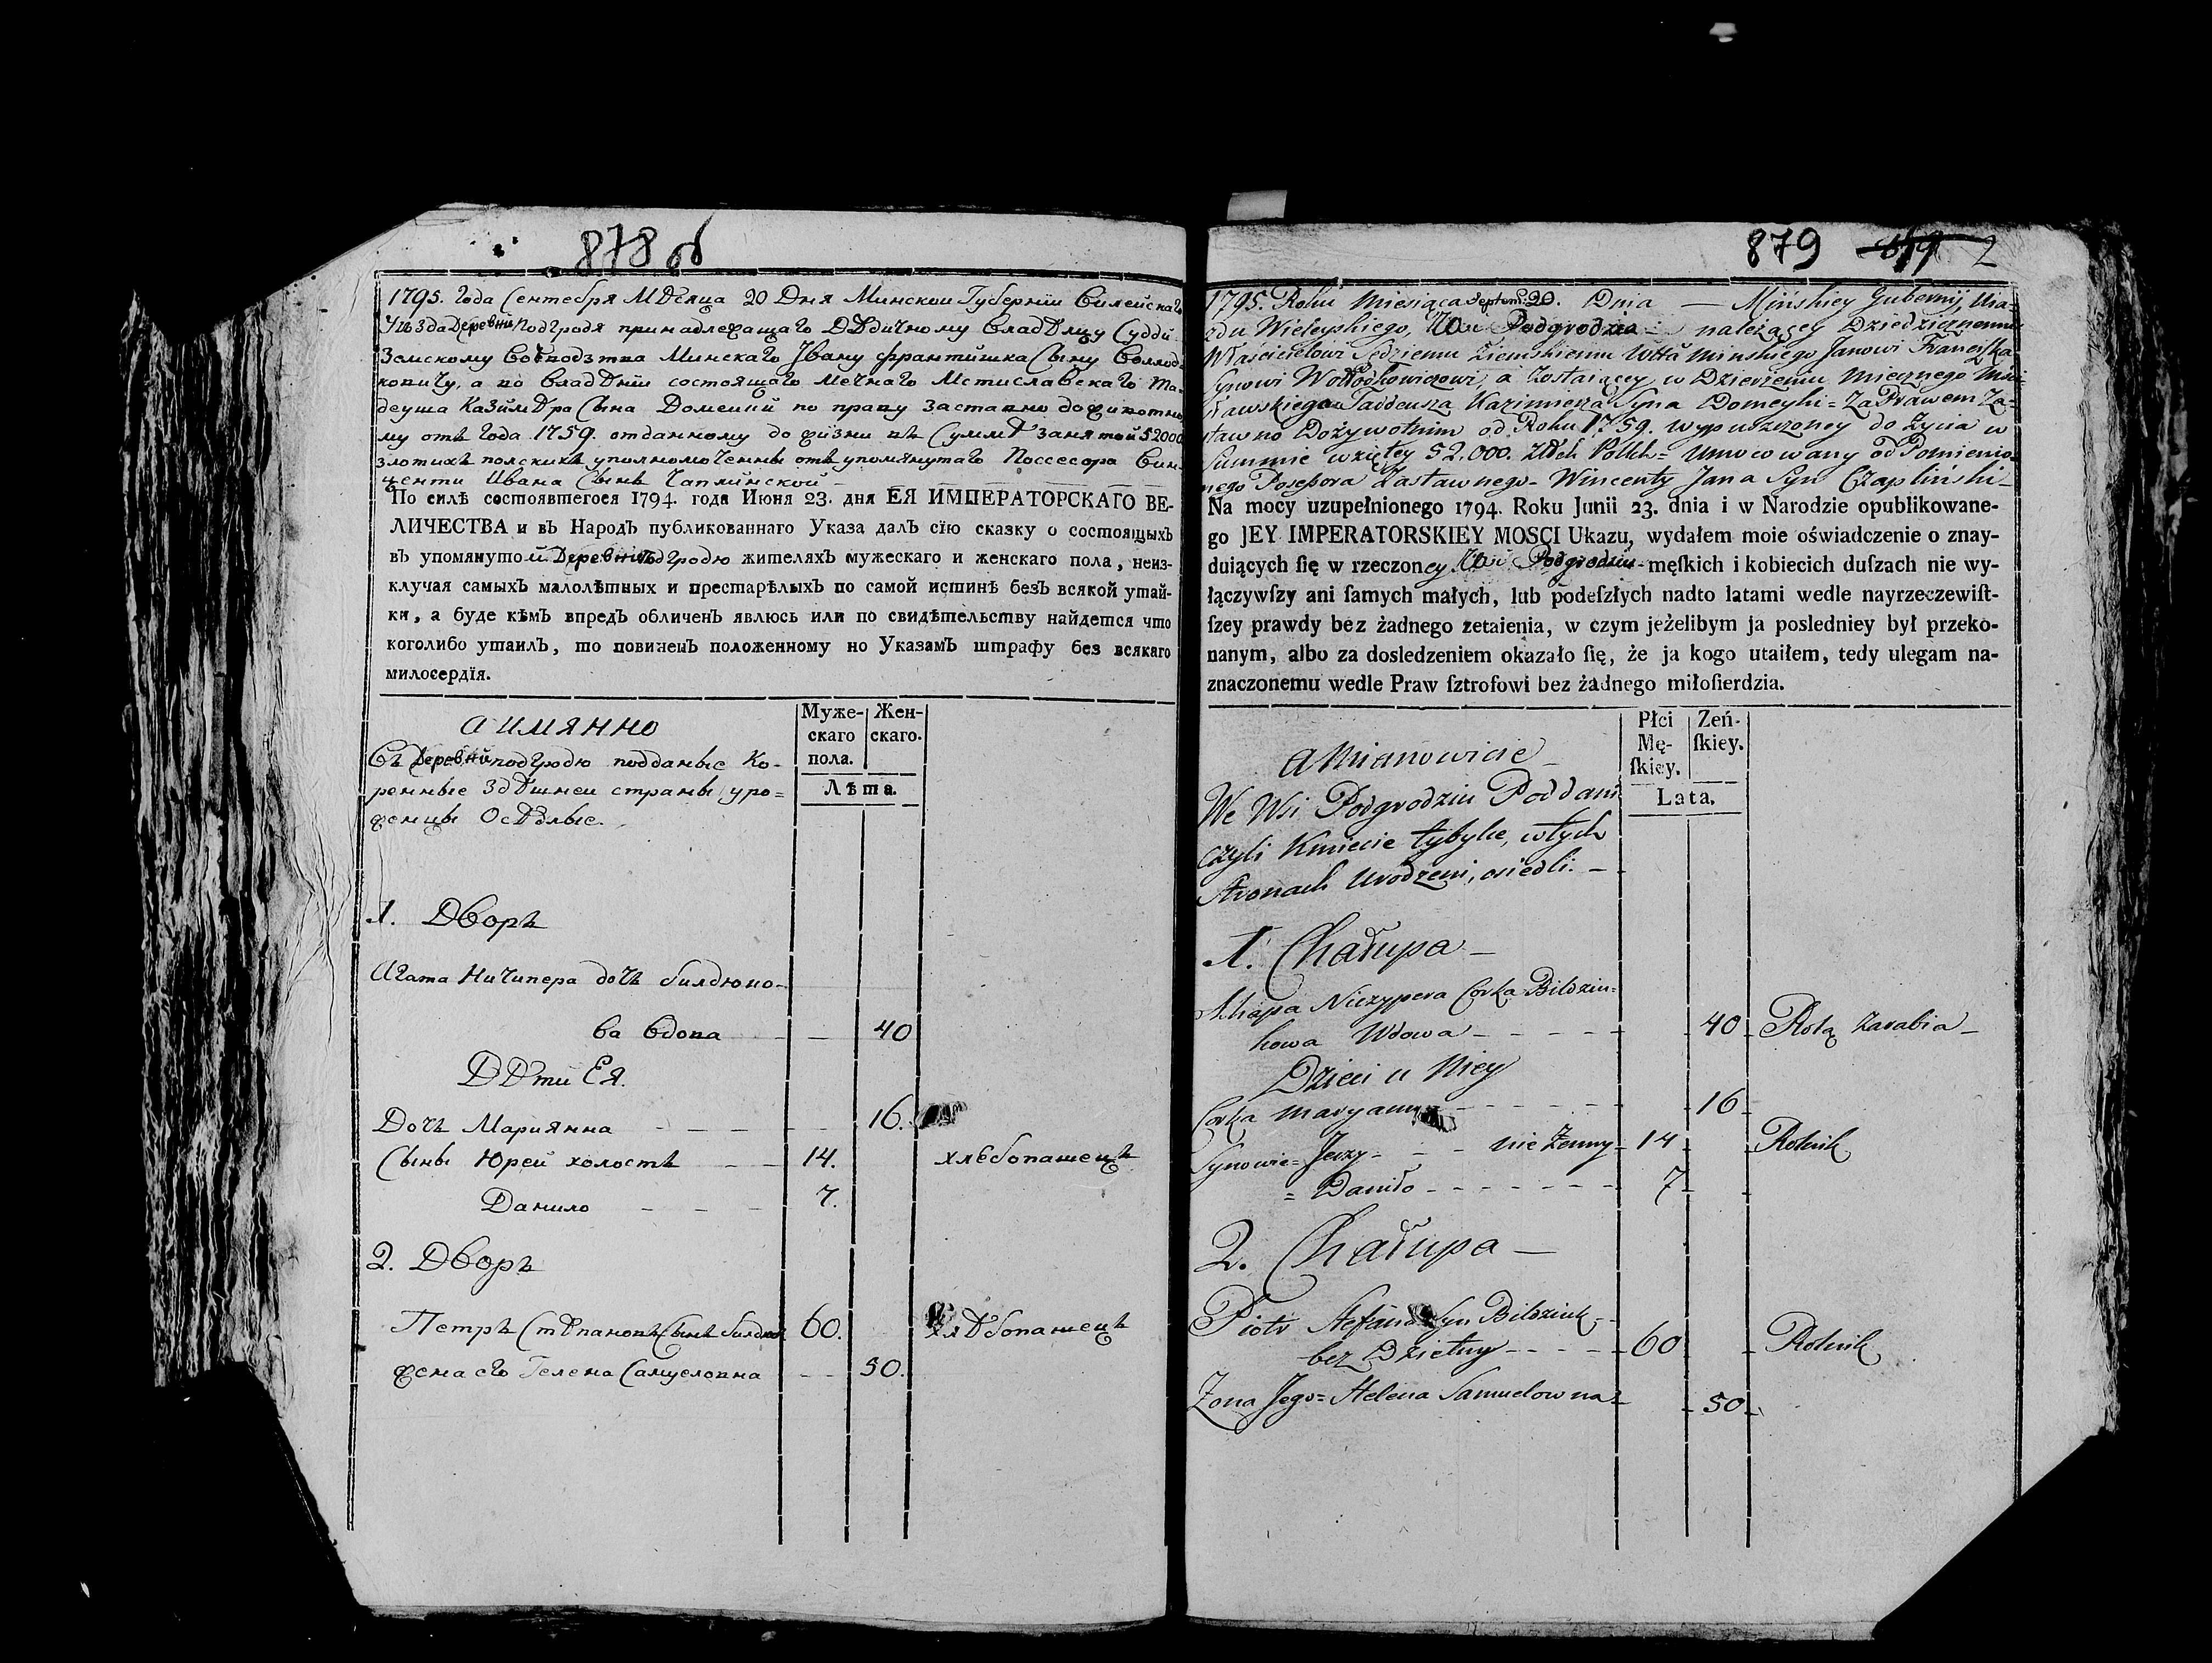 878 об
1795. года Сентебря Мѣсяца 20 Дня Минскои Губерніи Вилейскаго
Уѣзда Деревни Подгродя принадлежащаго Дѣдичному Владѣлцу Суддіи
Земскому Воеводзтва Минскаго Ивану Франтишка Сыну Воллод-
ковичу, а во владѣніи состоящаго Мечнаго Мстиславскаго Та-
деуша Казимѣра Сына Домейки по праву заставно дожівотно
му отъ года 1759. отданному до жизни въ Суммѣ занятой 52000
злотихъ полскихъ уполномоченны отъ упомянутаго Поссесора Вин-
центи Ивана Сынъ Чаплинской
По силѣ состоявшегося 1794. года Июня 23. дня ЕЯ ИМПЕРАТОРСКАГО ВЕ-
ЛИЧЕСТВА и въ Народъ публикованнаго Указа далъ сїю сказку о состоящыхъ
въ упомянутой Деревни Подгродю жителяхъ мужескаго и женскаго пола, неиз-
ключая самыхъ малолѣтных и престарѣлыхъ по самой истинѣ безъ всякой утай-
ки, а буде кѣмъ впредь обличенъ явлюсь или по свидѣтельству найдется что
коголибо утаилъ, то повиненъ положенному по Указамъ штрафу без всякаго
милосердїя.
а имянно
Муже-
скаго
пола.
Жен-
скаго.
Лѣта.
Въ Деревни подгродю подданые Ко-
ренные здѣшнеи страны уро=
женцы Осѣдлые.
1. Дворъ
Агата Ничипера дочъ Билдюко-
ва вдова 40
Дѣти Ея.
Дочъ Мариянна 16.
Сыны Юрей холостъ 14. хлебопашецъ
Данило 7.
2. Дворъ
Петръ Стѣпановъ Сынъ Билдюк 60. хлѣбопашецъ
жена его Гелена Самуеловна 50.
879 2
1795. Roku Miesiąca Septem: 20. Dnia — Mińskiey Gubernij, Uia-
zdu Wieleyskiego, Wsi Podgrodzia należącey Dziedzicznemu
Właścicielowi Sędziemu Ziemskiemu Wttá Minskiego Janowi Franciszka
Synowi Wołłodkowiczowi, a zostaiącey w Dzierżeniu Miecznego Mści-
sławskiego Tadeusza Kazimierza Syna Domeyki = Za Prawem Za=
stawno Dożywotnim od Roku 1759. wypuszczoney do Życia w
Summie wziętey 52.000. Złłch Pollch = Umocowany od Pomienio-
nego Possesora Zastawnego - Wincenty Jana Syn Czapliński -
Na mocy uzupełnionego 1794. Roku Junii 23. dnia i w Narodzie opublikowane-
go JEY IMPERATORSKIEY MOSCI Ukazu, wydałem moie oświadczenie o znay-
duiących ſię w rzeczoney Wsi Podgrodziu męſkich i kobiecich duſzach nie wy-
łączywſzy ani ſamych małych, lub podeſzłych nadto latami wedle nayrzeczewiſt-
ſzey prawdy bez żadnego zetaienia, w czym jeżelibym ja posledniey był przeko-
nanym, albo za dosledzeniem okazało ſię, że ja kogo utaiłem, tedy ulegam na-
znaczonemu wedle Praw ſztrofowi bez żadnego miłoſierdzia.
a Mianowicie
Płci
Mę-
ſkiey.
Zeń-
ſkiey.
Lata.
We Wsi Podgrodziu Poddani
czyli Kmiecie tybylce, w tych
stronach Urodzeni, osiedli. -
1. Chałupa -
Ahapa Niczypera Corka Bildziu=
kowa Wdowa 40 Rolą zarabia -
Dzieci u Niey
Corka Maryanna 16
Synowie = Jerzy - nie żenny 14 Rolnik
= Daniło 7
2. Chałupa -
Piotr Stefana Syn Bildziuk -
bez Dzietny 60 Rolnik
Zona Jego = Helena Samuelowna 50